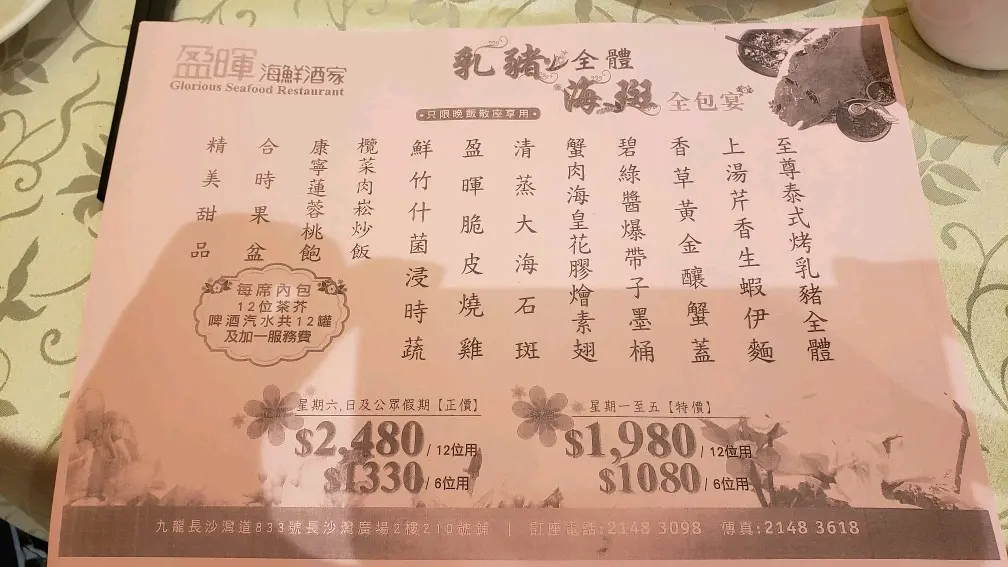 盈暉 海鮮酒家
Glorious Seafood Restaurant
乳豬 全體
海斑 全包宴
•只限晚飯散座享用•
至尊泰式烤乳豬全體
上湯芹香生蝦伊麵
香草黃金釀蟹蓋
碧綠醬爆帶子墨桶
蟹肉海皇花膠燴素翅
清蒸大海石斑
盈暉脆皮燒雞
鮮竹什菌浸時蔬
欖菜肉崧炒飯
康寧蓮蓉桃飽
合時果盆
精美甜品
每席內包
12位茶芥
啤酒汽水共12罐
及加一服務費
正價
星期六,日及公眾假期【正價】
$2,480/12位用
$1330/6位用
特價
星期一至五【特價】
$1,980/12位用
$1080/6位用
九龍長沙灣道833號長沙灣廣場2樓210號舖 | 訂座電話:2148 3098 傳真:2148 3618